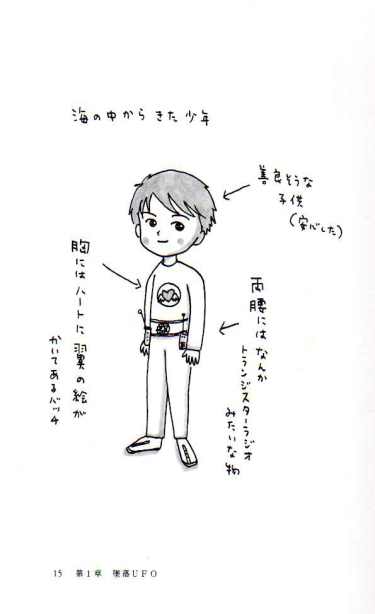 海の中からきた少年
善良そうな
子供
(安心した)
両腰にはなんか
トランジスターラジオ
みたいな物
胸にはハートに羽翼の絵が
かいてあるバッチ
15 第1章 墜落UFO